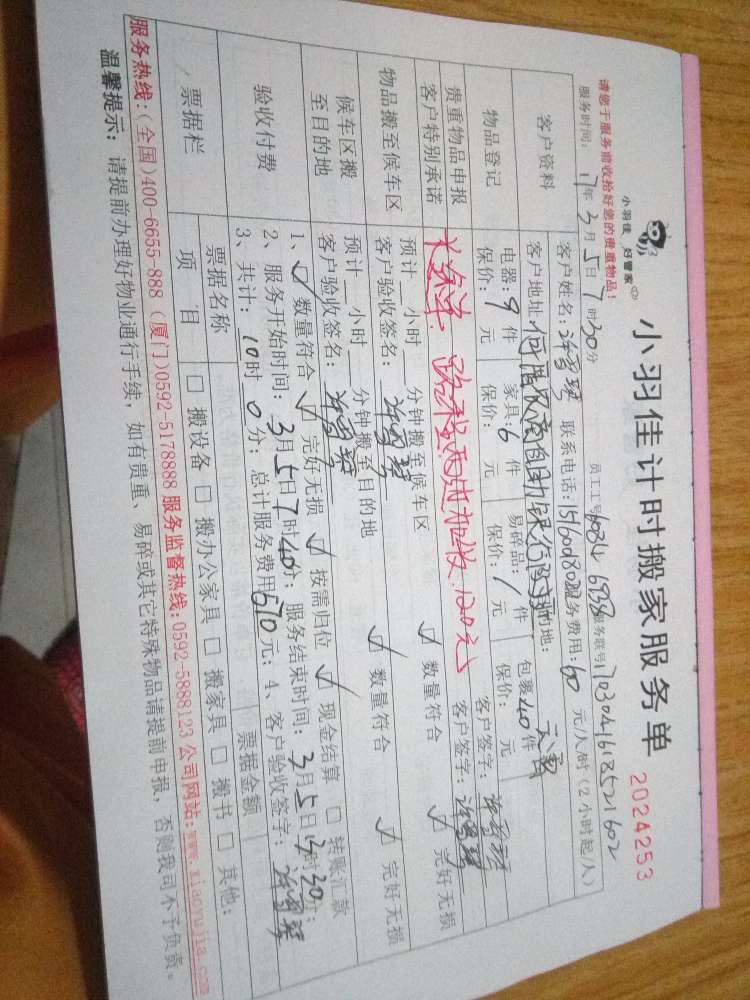 小羽佳 好管家
小羽佳计时搬家服务单 2024253
请您于服务前收拾好您的贵重物品!
员工工号 服务联号:1703041618521602
服务时间:17年3月5日7时30分
客户资料
客户姓名: 联系电话: 服务费用:60元/人/时(2小时起/人)
客户地址: 目的地:
物品登记
电器:9件 家具:6件 易碎品:1件 包裹40件
保价: 元 保价: 元 保价: 元 保价: 元
贵重物品申报
客户特别承诺
长途单,路程两边加收120元
客户签字:
客户签字:
物品搬至候车区
预计 小时 分钟搬至候车区 ✓ 数量符合 ✓ 完好无损
客户验收签名:
候车区搬至目的地
预计 小时 分钟搬至目的地 ✓ 数量符合 ✓ 完好无损
客户验收签名:
验收付费
1、✓ 数量符合 ✓ 完好无损 ✓ 按需归位 ✓ 现金结算 □ 转账汇款
2、服务开始时间:3月5日7时40分;服务结束时间:3月5日13时30分;
3、共计:10时0分;总计服务费用:570元;4、客户验收签字:
票据栏
票据名称 票据金额
项目 □ 搬设备 □ 搬办公家具 □ 搬家具 □ 搬书 □ 其他:
服务热线:(全国)400-6655-888 (厦门)0592-5178888 服务监督热线:0592-5888123 公司网站:www.xiaoyujia.com
温馨提示: 请提前办理好物业通行手续,如有贵重、易碎或其它特殊物品请提前申报,否则我司不予负责。